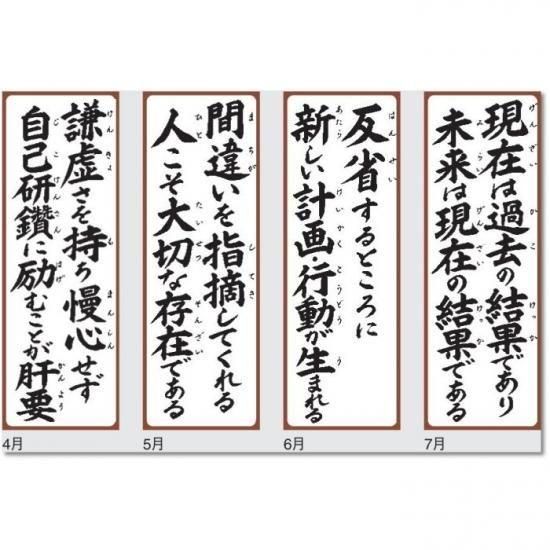 謙虚さを持ち慢心せず
自己研鑽に励むことが肝要
4月
間違いを指摘してくれる
人こそ大切な存在である
5月
反省するところに
新しい計画・行動が生まれる
6月
現在は過去の結果であり
未来は現在の結果である
7月